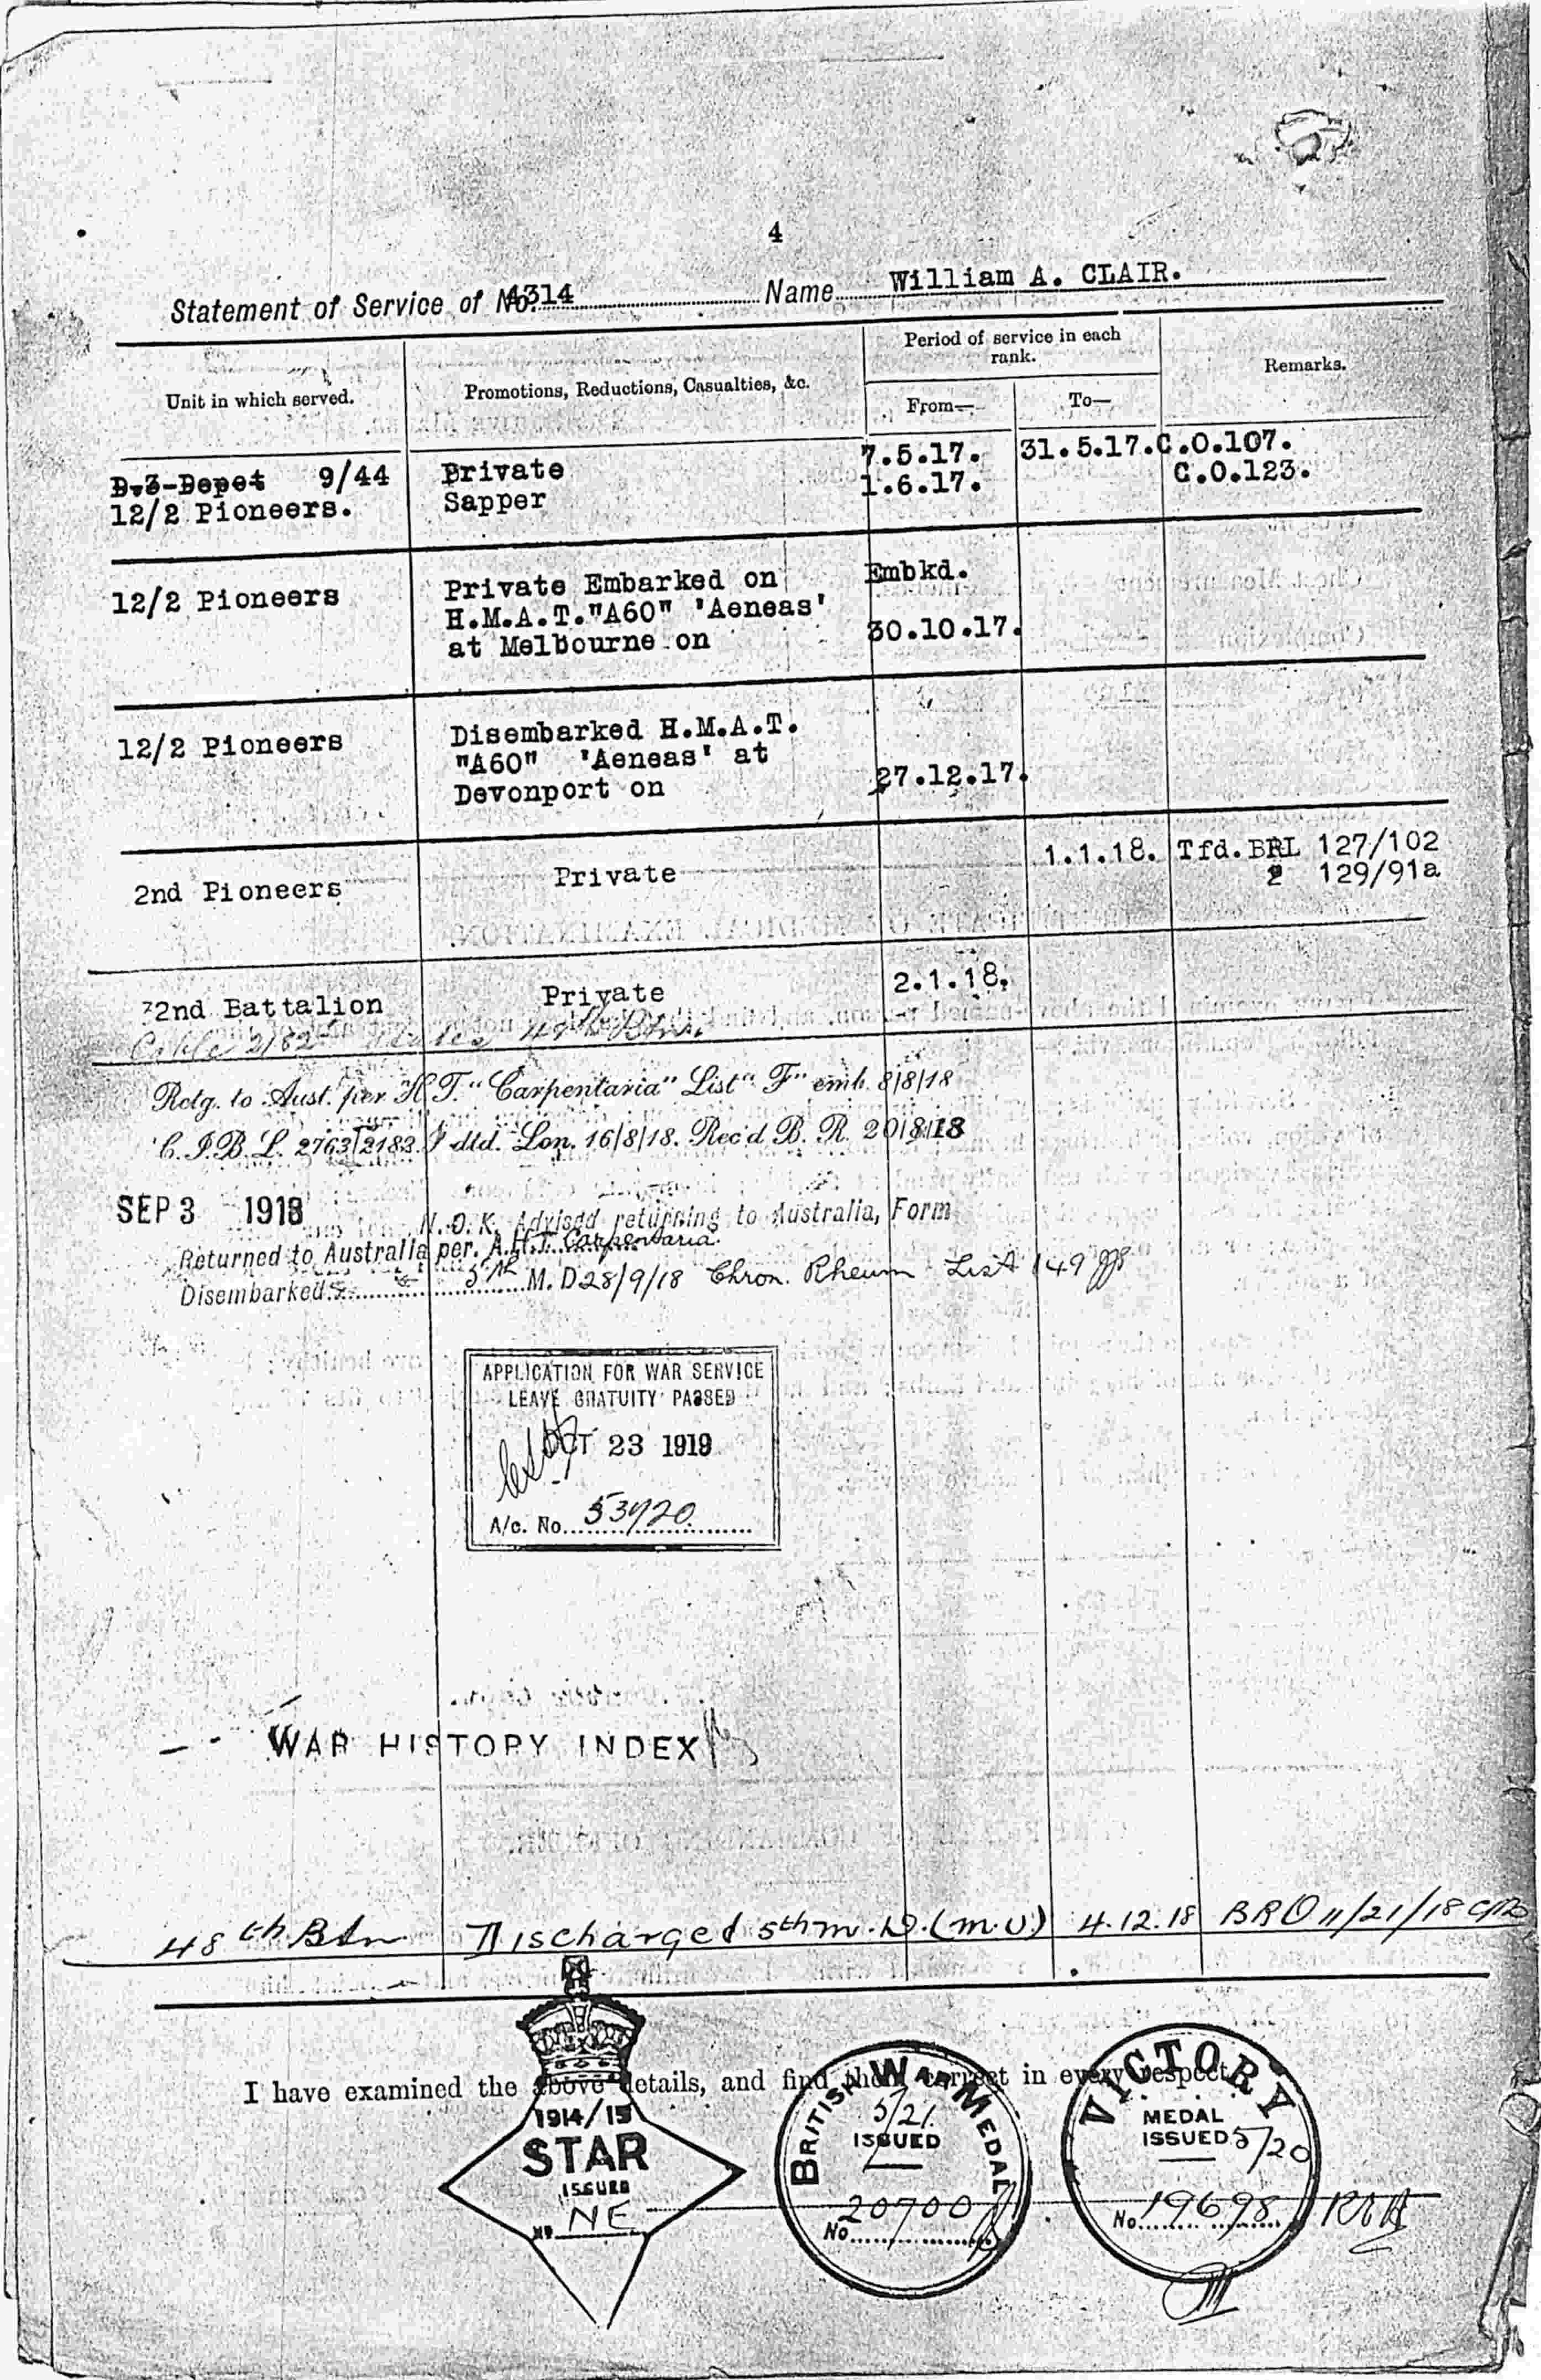 4
Statement of Service of No. 4314 Name William A. CLAIR.
Unit in which served. Promotions, Reductions, Casualties, &c. Period of service in each rank. From— To— Remarks.
D.3-Depot 9/44 Private 7.5.17. 31.5.17. C.O.107.
12/2 Pioneers. Sapper 1.6.17. C.O.123.
12/2 Pioneers Private Embarked on Embkd.
H.M.A.T."A60" 'Aeneas'
at Melbourne on 30.10.17.
12/2 Pioneers Disembarked H.M.A.T.
"A60" 'Aeneas' at
Devonport on 27.12.17.
2nd Pioneers Private 1.1.18. Tfd.BRL 127/102
2 129/91a
2nd Battalion Private 2.1.18.
Cable 2182 states 48th Btn.
Retg. to Aust. per H.T. "Carpentaria" List "F" emb. 8/8/18
C.I.B.L. 2763/2183. dtd. Lon. 16/8/18. Rec'd B. R. 20/8/18
SEP 3 1918 N.O.K. Advised returning to Australia, Form
Returned to Australia per. A.H.T. Carpentaria.
Disembarked 5th M.D 28/9/18 Chron. Rheum List 149
APPLICATION FOR WAR SERVICE
LEAVE GRATUITY PASSED
OCT 23 1919
A/c. No. 53920
WAR HISTORY INDEX
48th Btn Discharged 5th M.D. (M.U) 4.12.18 BRO 11/21/18
I have examined the above details, and find them correct in every respect.
1914/15
STAR
ISSUED
No NE
BRITISH WAR MEDAL
5/21
ISSUED
No 20700
VICTORY
MEDAL
ISSUED 5/20
No. 19698